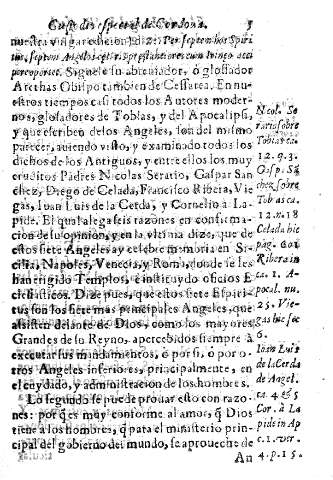 Custodio espetel de Cordoua. 5
nuestra vulgar edicion dize: Per septem hos Spiri
tus, septem Angelos
Siguele su abreuiador, ò glossador
Arethas Obispo tambien de Cessarea. En nu-
estros tiempos casi todos los Autores moder-
nos, glosadores de Tobias, y del Apocalipsi,
y que escriben de los Angeles, son del mismo
parecer, auiendo visto, y examinado todos los
dichos de los Antiguos, y entre ellos los muy
eruditos Padres Nicolas Seratio, Gaspar San
chez, Diego de Celada, Francisco Ribera, Vie
gas, Iuan Luis de la Cerda, y Cornelio à La-
pide. El qual alega seis razones en confirma-
cion de su opinion, y en la vltima dize, que de
estos siete Angeles ay celebre memoria en Si-
cilia, Napoles, Venecia, y Roma, donde se les
han erigido Templos, è instituydo oficios E
clesiasticos. Dize pues, que estos siete Espiri-
tus son los siete mas principales Angeles, que
assisten delante de Dios, como los mayores
Grandes de su Reyno, apercebidos siempre à
executar sus mandamientos, ò por si, ò por o-
tros Angeles inferiores, principalmente, en
el cuydado, y administracion de los hombres.
Lo segundo se puede prouar esto con razo-
nes: porq̃ es muy conforme al amor, q̃ Dios
tiene à los hombres, q̃ para el ministerio prin-
cipal del gobierno del mundo, se aproueche de
An
Nicol. Se
ratio sobre
Tobias ca.
12. q. 3.
Gasp. Sã
chez sobre
Tobias ca.
12. n. 18
Celada hic
pag. 601
Ribera in
ca. 1. A-
pocal. nu.
25. Vie-
gas hic sec
6.
Iuan Luis
de la Cerda
de Angel.
ca. 4 & 5
Cor. à La
pide in Ap
c. 1. ver.
4. p. 15.